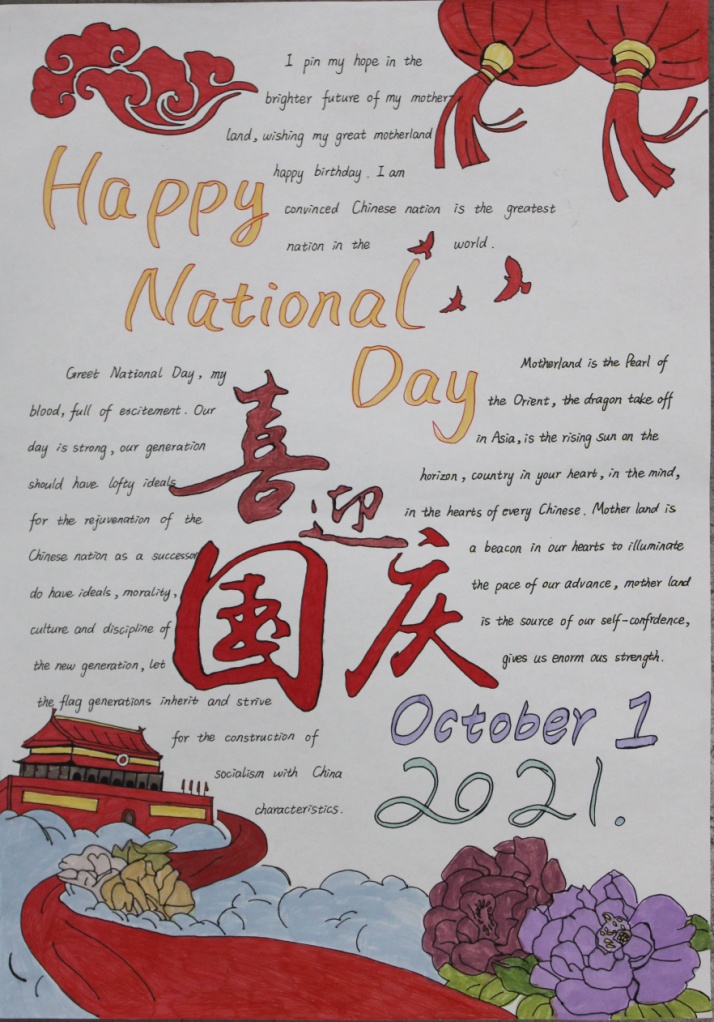 I pin my hope in the
brighter future of my mother-
land, wishing my great motherland
happy birthday. I am
convinced Chinese nation is the greatest
nation in the world.
Happy
National
Day
Greet National Day, my
blood, full of escitement. Our
day is strong, our generation
should have lofty ideals
for the rejuvenation of the
Chinese nation as a successor
do have ideals, morality,
culture and discipline of
the new generation, let
the flag generations inherit and strive
for the construction of
socialism with China
characteristics.
喜
迎
国
庆
Motherland is the Pearl of
the Orient, the dragon take off
in Asia, is the rising sun on the
horizon, country in your heart, in the mind,
in the hearts of every Chinese. Mother land is
a beacon in our hearts to illuminate
the pace of our advance, mother land
is the source of our self-confrdence,
gives us enorm ous strength.
October 1
2021.